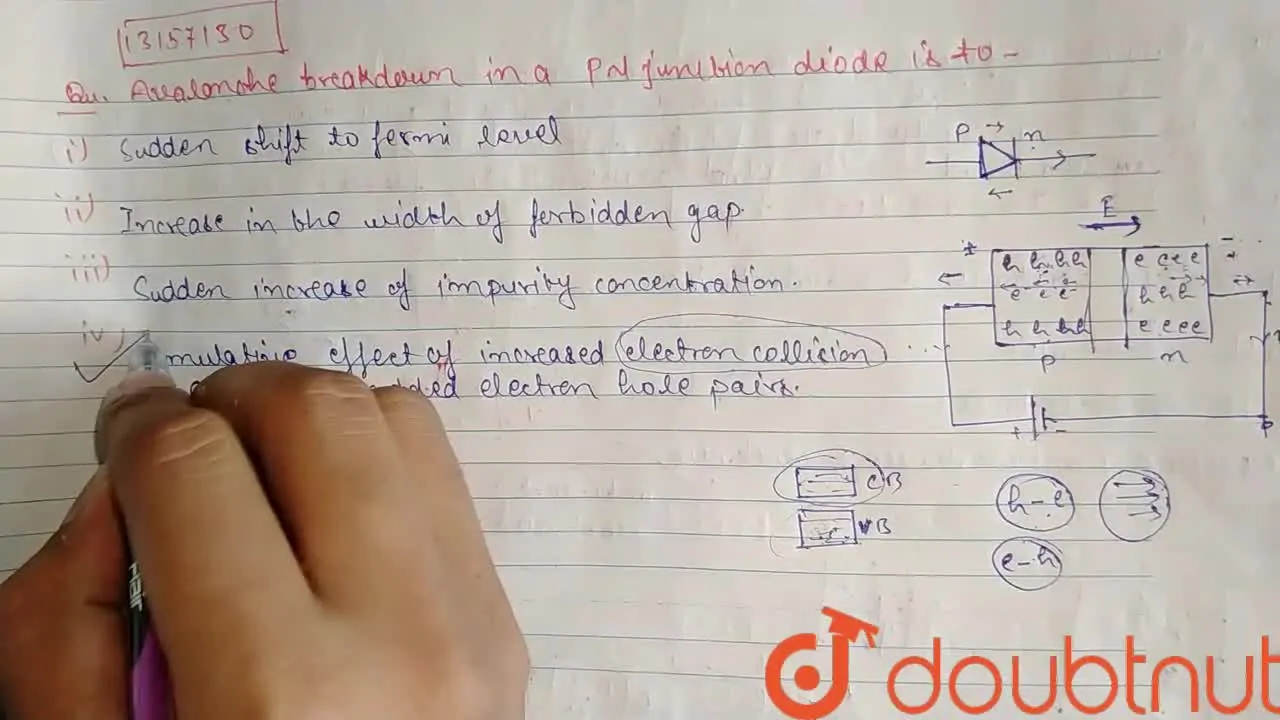 13157130
Qu. Avalanche breakdown in a PN junction diode is to -
i) Sudden shift to fermi level
ii) Increase in the width of forbidden gap.
iii) Sudden increase of impurity concentration.
iv) mulative effect of increased electron collision
electron hole pairs.
P → n
←
E
+ -
h h h h e e e e
e e e h h h
h h h h e e e e
P n
+ -
CB
VB
h-e
e-h
doubtnut